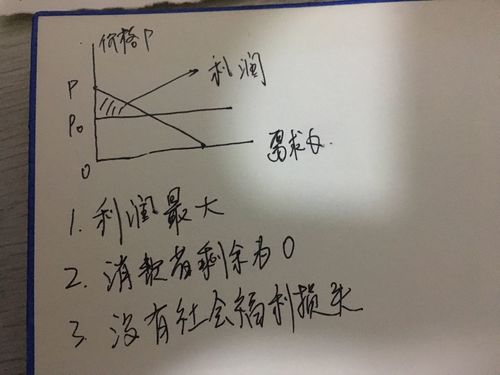 价格P
利润
P
P₀
0
需求Q
1. 利润最大
2. 消费者剩余为0
3. 没有社会福利损失